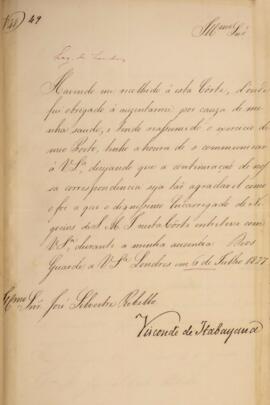 49
Ill.mo Snr
Leg. de Londres
Havendo me recolhido à esta Côrte, d'onde
fui obrigado à auzentarme por cauza de mi-
nha saude, e tendo reassumido o exercicio do
meo Posto, tenho a honra de o communicar
à V. S.ª, dezejando que a continuação de nos-
sa correspondencia seja tão agradavel como
o foi a que o dignissimo Encarregado de Ne-
gocios de S. M. I. nesta Côrte entreteve com
V. S.ª durante a minha auzencia. Deos
Guarde a V. S.ª Londres em de Julho 1827
Snr. José Silvestre Rebello
Visconde de Itabayana